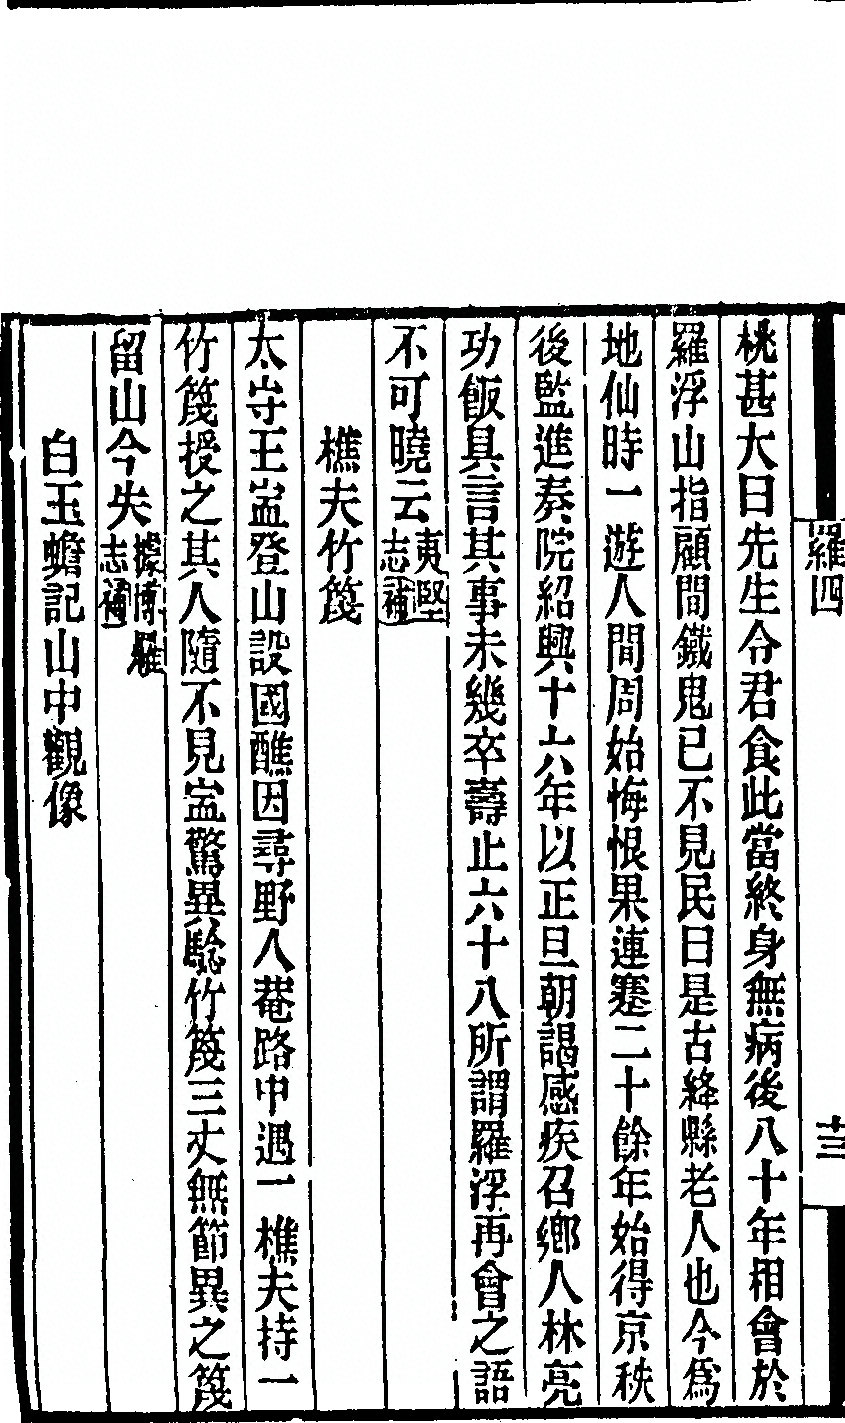 羅四
十三
桃甚大曰先生令君食此當終身無病後八十年相會於
羅浮山指顧間鐵鬼已不見民曰是古絳縣老人也今為
地仙時一遊人間周始悔恨果連蹇二十餘年始得京秩
後監進奏院紹興十六年以正旦朝謁感疾召鄉人林亮
功飯具言其事未幾卒壽止六十八所謂羅浮再會之語
不可曉云夷堅志補
樵夫竹篾
太守王寍登山設國醮因尋野人菴路中遇一樵夫持一
竹篾授之其人隨不見寍驚異驗竹篾三丈無節異之篾
留山今失據博羅志補
白玉蟾記山中觀像